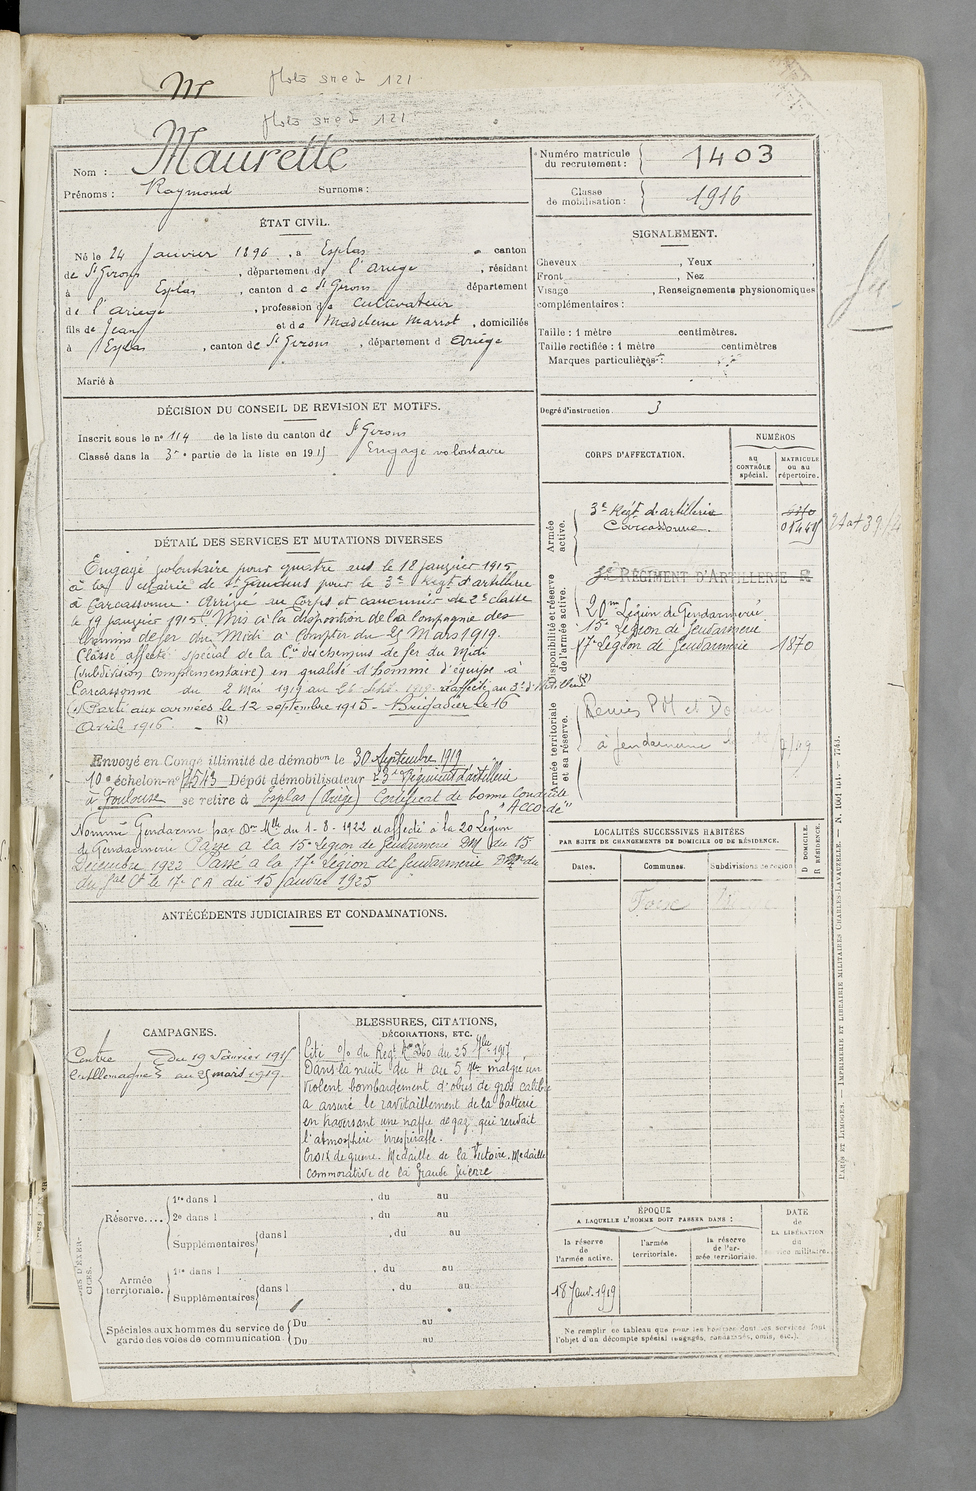 Photo
121
Photo
121
Nom : Maurette
Prénoms : Raymond Surnoms :
Numéro matricule
du recrutement : 1403
Classe
de mobilisation : 1916
ÉTAT CIVIL.
Né le 24 Janvier 1896, à Esplas canton
de St Girons, département de l'Ariège, résidant
à Esplas, canton de St Girons département
de l'Ariège, profession de cultivateur
fils de Jean et de Madeleine Marrot, domiciliés
à Esplas, canton de St Girons, département d Ariège
Marié à
SIGNALEMENT.
Cheveux , Yeux ,
Front , Nez
Visage , Renseignements physionomiques
complémentaires :
Taille : 1 mètre centimètres.
Taille rectifiée : 1 mètre centimètres
Marques particulières :
Degré d'instruction. 3
DÉCISION DU CONSEIL DE REVISION ET MOTIFS.
Inscrit sous le n° 114 de la liste du canton de St Girons
Classé dans la 3e partie de la liste en 1915 Engagé volontaire
DÉTAIL DES SERVICES ET MUTATIONS DIVERSES
Engagé volontaire pour quatre ans le 18 janvier 1915
à la Mairie de St Gaudens pour le 3e Régt d'artillerie
à Carcassonne. Arrivé au Corps et canonnier de 2e classe
le 19 janvier 1915. Mis à la disposition de la Compagnie des
Chemins de fer du Midi à compter du 25 Mars 1919.
Classé affecté spécial de la Cie des chemins de fer du Midi
(subdivision complémentaire) en qualité d'homme d'équipe à
Carcassonne du 2 mai 1919 au réaffecté au 3e d'Artillerie
Parti aux armées le 12 septembre 1915 - Brigadier le 16
Avril 1916. (R)
Envoyé en Congé illimité de démobon le 30 Septembre 1919
10e échelon - n° 4543 Dépôt démobilisateur 23e Régiment d'artillerie
à Toulouse se retire à Esplas (Ariège) Certificat de bonne conduite
"Accordé"
Nommé Gendarme par Don Mlle du 1-8-1922 et affecté à la 20 Légion
de Gendarmerie Passé à la 15e Légion de Gendarmerie DM du 15
Décembre 1922 Passé à la 17e Légion de Gendarmerie Don du
du Gal Ct le 17e CA du 15 janvier 1925
CORPS D'AFFECTATION.
NUMÉROS
au
CONTRÔLE
spécial.
MATRICULE
ou au
répertoire.
Armée
active.
3e Régt d'artillerie
Carcassonne.
Disponibilité et réserve
de l'armée active.
RÉGIMENT D'ARTILLERIE
20me Légion de Gendarmerie
15e Légion de Gendarmerie
17e Légion de Gendarmerie 1870
Armée territoriale
et sa réserve.
Remis
à gendarmerie
ANTÉCÉDENTS JUDICIAIRES ET CONDAMNATIONS.
LOCALITÉS SUCCESSIVES HABITÉES
PAR SUITE DE CHANGEMENTS DE DOMICILE OU DE RÉSIDENCE.
Dates. Communes. Subdivisions de région
D DOMICILE.
R RÉSIDENCE.
CAMPAGNES.
Contre du 19 Janvier 1915
l'Allemagne au 25 mars 1919.
BLESSURES, CITATIONS,
DÉCORATIONS, ETC.
Cité o/ du Régt N° 360 du 25 7bre 1917
Dans la nuit du 4 au 5 7bre malgré un
violent bombardement d'obus de gros calibre
a assuré le ravitaillement de la batterie
en traversant une nappe de gaz qui rendait
l'atmosphère irrespirable.
Croix de guerre. Médaille de la Victoire. Médaille
commorative de la Grande Guerre
Réserve....
1re dans l , du au
2e dans l , du au
Supplémentaires dans l , du au
Armée
territoriale.
1re dans l , du au
Supplémentaires dans l , du au
Spéciales aux hommes du service de
garde des voies de communication.
Du au
Du au
ÉPOQUE
A LAQUELLE L'HOMME DOIT PASSER DANS :
la réserve
de
l'armée active.
l'armée
territoriale.
la réserve
de l'ar-
mée territoriale.
DATE
de
LA LIBÉRATION
du
service militaire.
18 Janv. 1919
Ne remplir ce tableau que pour les hommes dont les services font
l'objet d'un décompte spécial (engagés, condamnés, omis, etc.).
PARIS ET LIMOGES. — IMPRIMERIE ET LIBRAIRIE MILITAIRES CHARLES-LAVAUZELLE. — N. 1001 int. — 7743.